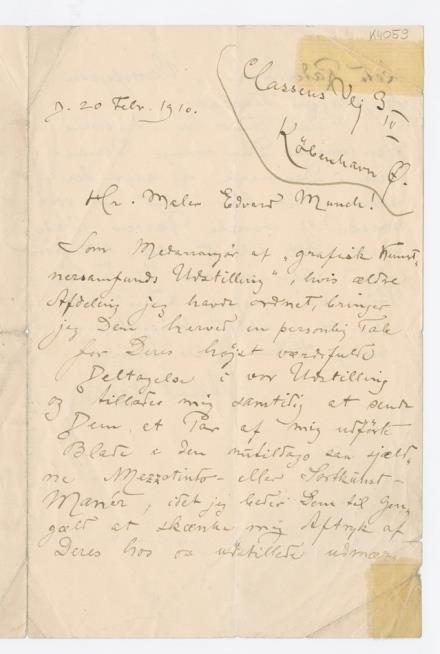 K4053
Classens Vej 3 IV
København Ø.
d. 20 Febr. 1910.
Hr. Maler Edvard Munch!
Som Medarrangør af "grafisk Kunst-
nersamfunds Udstilling", hvis ældre
Afdeling jeg havde ordnet, bringer
jeg Dem herved en personlig Tak
for Deres højst værdifulde
Deltagelse i vor Udstilling
og tillader mig samtidig at sende
Dem et Par af mig udførte
Blade i den nutildags saa sjæld-
ne Mezzotinto- eller Sortkunst-
Manér, idet jeg beder Dem til Gen-
gæld at skænke mig Aftryk af
Deres hos os udstillede udmær-